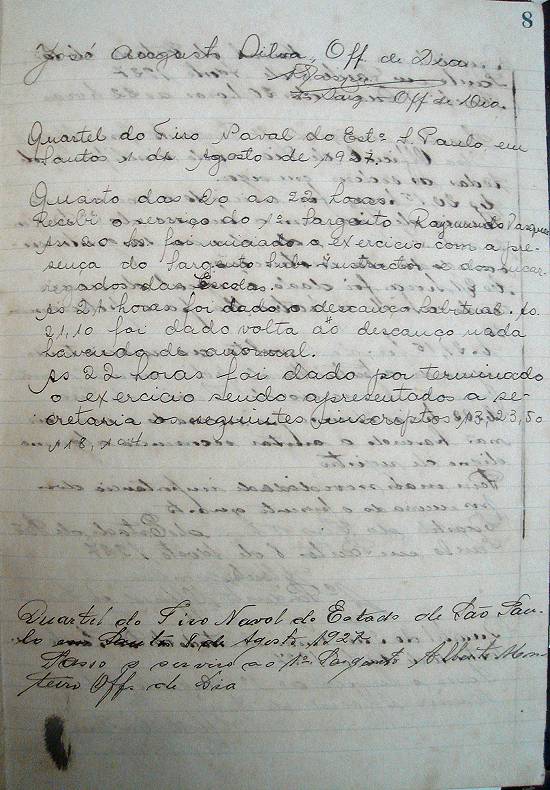 8
José Augusto Silva, Off de Dia
1º Sarg Off de Dia.
Quartel do Tiro Naval do Estº S. Paulo em
Santos 1 de Agosto de 1927.
Quarto das 20 as 22 horas.
Recebi o serviço do 1º Sargento Raymundo Vasques
As 20 hs foi iniciado o exercicio com a pre-
sença do Sargento Sub Instructor e dos encar-
regados das Escolas.
As 21 horas foi dado o descanço habitual. As
21,10 foi dado volta ao descanço nada
havendo de anormal.
As 22 horas foi dado por terminado
o exercicio sendo apresentados a se-
cretaria os seguintes inscriptos, 13, 23, 50
118, 104
Quartel do Tiro Naval do Estado de São Pau-
lo em Santos 1 de Agosto 1927
Passo o serviço ao 1º Sargento Alberto Mon-
teiro Off. de Dia